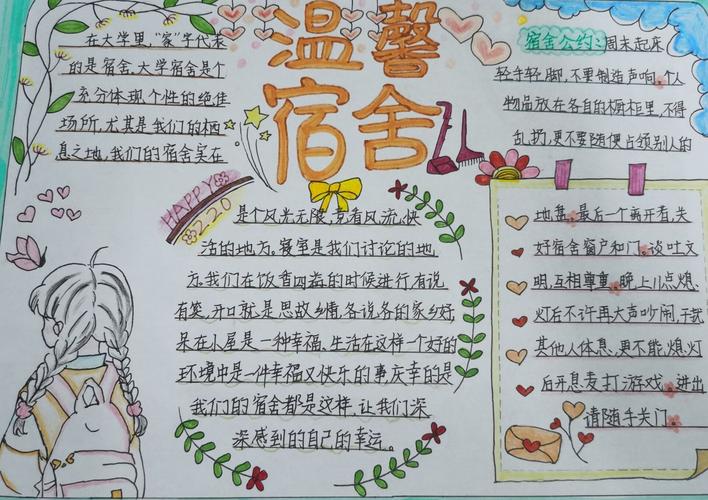 温馨
宿舍
在大学里，“家”字代表
的是宿舍。大学宿舍是个
充分体现个性的绝佳
场所，尤其是我们的栖
息之地，我们的宿舍实在
HAPPY
220
是个风光无限，竞有风流，快
活的地方。寝室是我们讨论的地
方。我们在饭香四溢的时候进行有说
有笑，开口就是思故乡情，各说各的家乡好，
呆在小屋是一种幸福、生活在这样一个好的
环境中是一件幸福又快乐的事，庆幸的是
我们的宿舍都是这样，让我们深
深感到的自己的幸运。
宿舍公约：周末起床
轻手轻脚，不要制造声响。个人
物品放在各自的橱柜里，不得
乱扔，更不要随便占领别人的
地盘。最后一个离开者，关
好宿舍窗户和门。谈吐文
明，互相尊重。晚上11点熄
灯后不许再大声吵闹，干扰
其他人体息，更不能熄灯
后开息麦打游戏。进出
请随手关门。